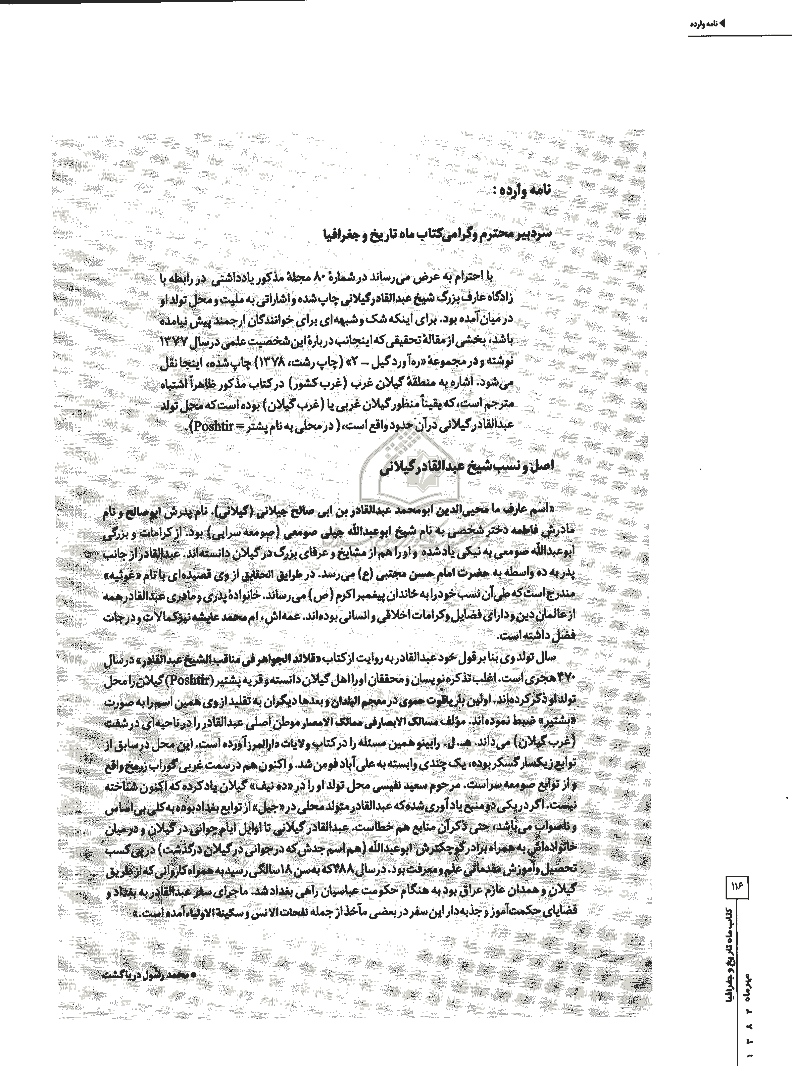 نامه وارده
نامه وارده :
سردبیر محترم و گرامی کتاب ماه تاریخ و جغرافیا
با احترام به عرض می‌رساند در شمارهٔ ۸۰ مجلهٔ مذکور یادداشتی در رابطه با
زادگاه عارف بزرگ شیخ عبدالقادر گیلانی چاپ شده و اشاراتی به ملیت و محل تولد او
در میان آمده بود. برای اینکه شک و شبهه ای برای خوانندگان ارجمند پیش نیامده
باشد، بخشی از مقالهٔ تحقیقی که اینجانب دربارهٔ این شخصیت علمی در سال ۱۳۷۷
نوشته و در مجموعهٔ «ره‌آورد گیل – ۲» (چاپ رشت، ۱۳۷۸) چاپ شده، اینجا نقل
می‌شود. اشاره به منطقهٔ گیلان غرب (غرب کشور) در کتاب مذکور ظاهراً اشتباه
مترجم است، که یقیناً منظور گیلان غربی یا (غرب گیلان) بوده است که محل تولد
عبدالقادر گیلانی در آن حدود واقع است، ( در محلی به نام پشتر = Poshtir).
اصل و نسب شیخ عبدالقادر گیلانی
«اسم عارف ما محیی‌الدین ابومحمد عبدالقادر بن ابی صالح جیلانی (گیلانی)، نام پدرش ابوصالح و نام
مادرش فاطمه دختر شخصی به نام شیخ ابوعبدالله جیلی صومعی (صومعه سرایی) بود. از کرامات و بزرگی
ابوعبدالله صومعی به نیکی یاد شده و او را هم از مشایخ و عرفای بزرگ در گیلان دانسته‌اند. عبدالقادر از جانب
پدر به ده واسطه به حضرت امام حسن مجتبی (ع) می‌رسد. در طرایق الحقایق از وی قصیده‌ای با نام «غوثیه»
مندرج است که طی آن نسب خود را به خاندان پیغمبر اکرم (ص) می‌رساند. خانوادهٔ پدری و مادری عبدالقادر همه
از عالمان دین و دارای فضایل و کرامات اخلاقی و انسانی بوده‌اند. عمه‌اش، ام محمد عایشه نیز کمالات و درجات
فضل داشته است.
سال تولد وی بنا بر قول خود عبدالقادر به روایت از کتاب «قلائد الجواهر فی مناقب الشیخ عبدالقادر» در سال
۴۷۰ هجری است. اغلب تذکره‌نویسان و محققان او را اهل گیلان دانسته و قریه پشتیر (Poshtir) گیلان را محل
تولد او ذکر کرده‌اند. اولین بار یاقوت حموی در معجم البلدان و بعدها دیگران به تقلید از وی همین اسم را به صورت
«بشتیر» ضبط نموده‌اند. مؤلف مسالک الابصار فی ممالک الامصار موطن اصلی عبدالقادر را در ناحیه‌ای در شفت
(غرب گیلان) می‌داند. هـ. ل. رابینو همین مسئله را در کتاب ولایات دارالمرز آورده است. این محل در سابق از
توابع زیکسار گسکر بوده، یک چندی وابسته به علی‌آباد فومن شد. و اکنون هم در سمت غربی گوراب زرمخ واقع
و از توابع صومعه سراست. مرحوم سعید نفیسی محل تولد او را در «ده نیف» گیلان یاد کرده که اکنون شناخته
نیست. اگر در یکی دو منبع یادآوری شده که عبدالقادر متولد محلی در «جیل» از توابع بغداد بوده به کلی بی‌اساس
و ناصواب می‌باشد، حتی ذکر آن منابع هم خطاست. عبدالقادر گیلانی تا اوایل ایام جوانی در گیلان و در میان
خانواده‌اش به همراه برادر کوچکترش ابوعبدالله (هم اسم جدش که در جوانی در گیلان درگذشت) در پی کسب
تحصیل و آموزش مقدماتی علم و معرفت بود. در سال ۴۸۸ که به سن ۱۸ سالگی رسید به همراه کاروانی که از طریق
گیلان و همدان عازم عراق بود به هنگام حکومت عباسیان راهی بغداد شد. ماجرای سفر عبدالقادر به بغداد و
قضایای حکمت‌آموز و جذبه‌دار این سفر در بعضی مآخذ از جمله نفحات الانس و سکینة الاولیاء آمده است.»
محمد رسول دریاگشت
۱۱۶
کتاب ماه تاریخ و جغرافیا
مهرماه ۱۳۸۳